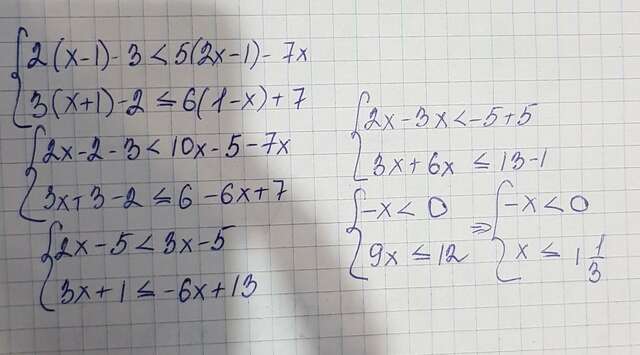 2(x-1)-3<5(2x-1)-7x
3(x+1)-2≤6(1-x)+7
2x-2-3<10x-5-7x
3x+3-2≤6-6x+7
2x-5<3x-5
3x+1≤-6x+13
2x-3x<-5+5
3x+6x≤13-1
-x<0
9x≤12
⇒
-x<0
x≤1 1/3